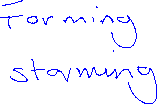 Forming
storming